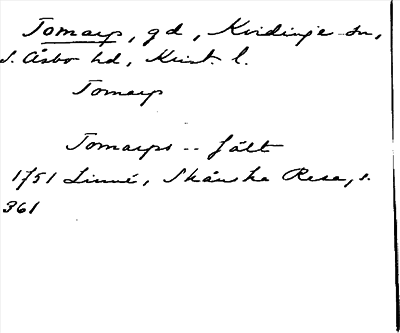 Tomarp, gd, Kvidinge sn,
S. Åsbo hd, Krist. l.
Tomarp
Tomarps -- fält
1751 Linné, Skånska Resa, s.
361